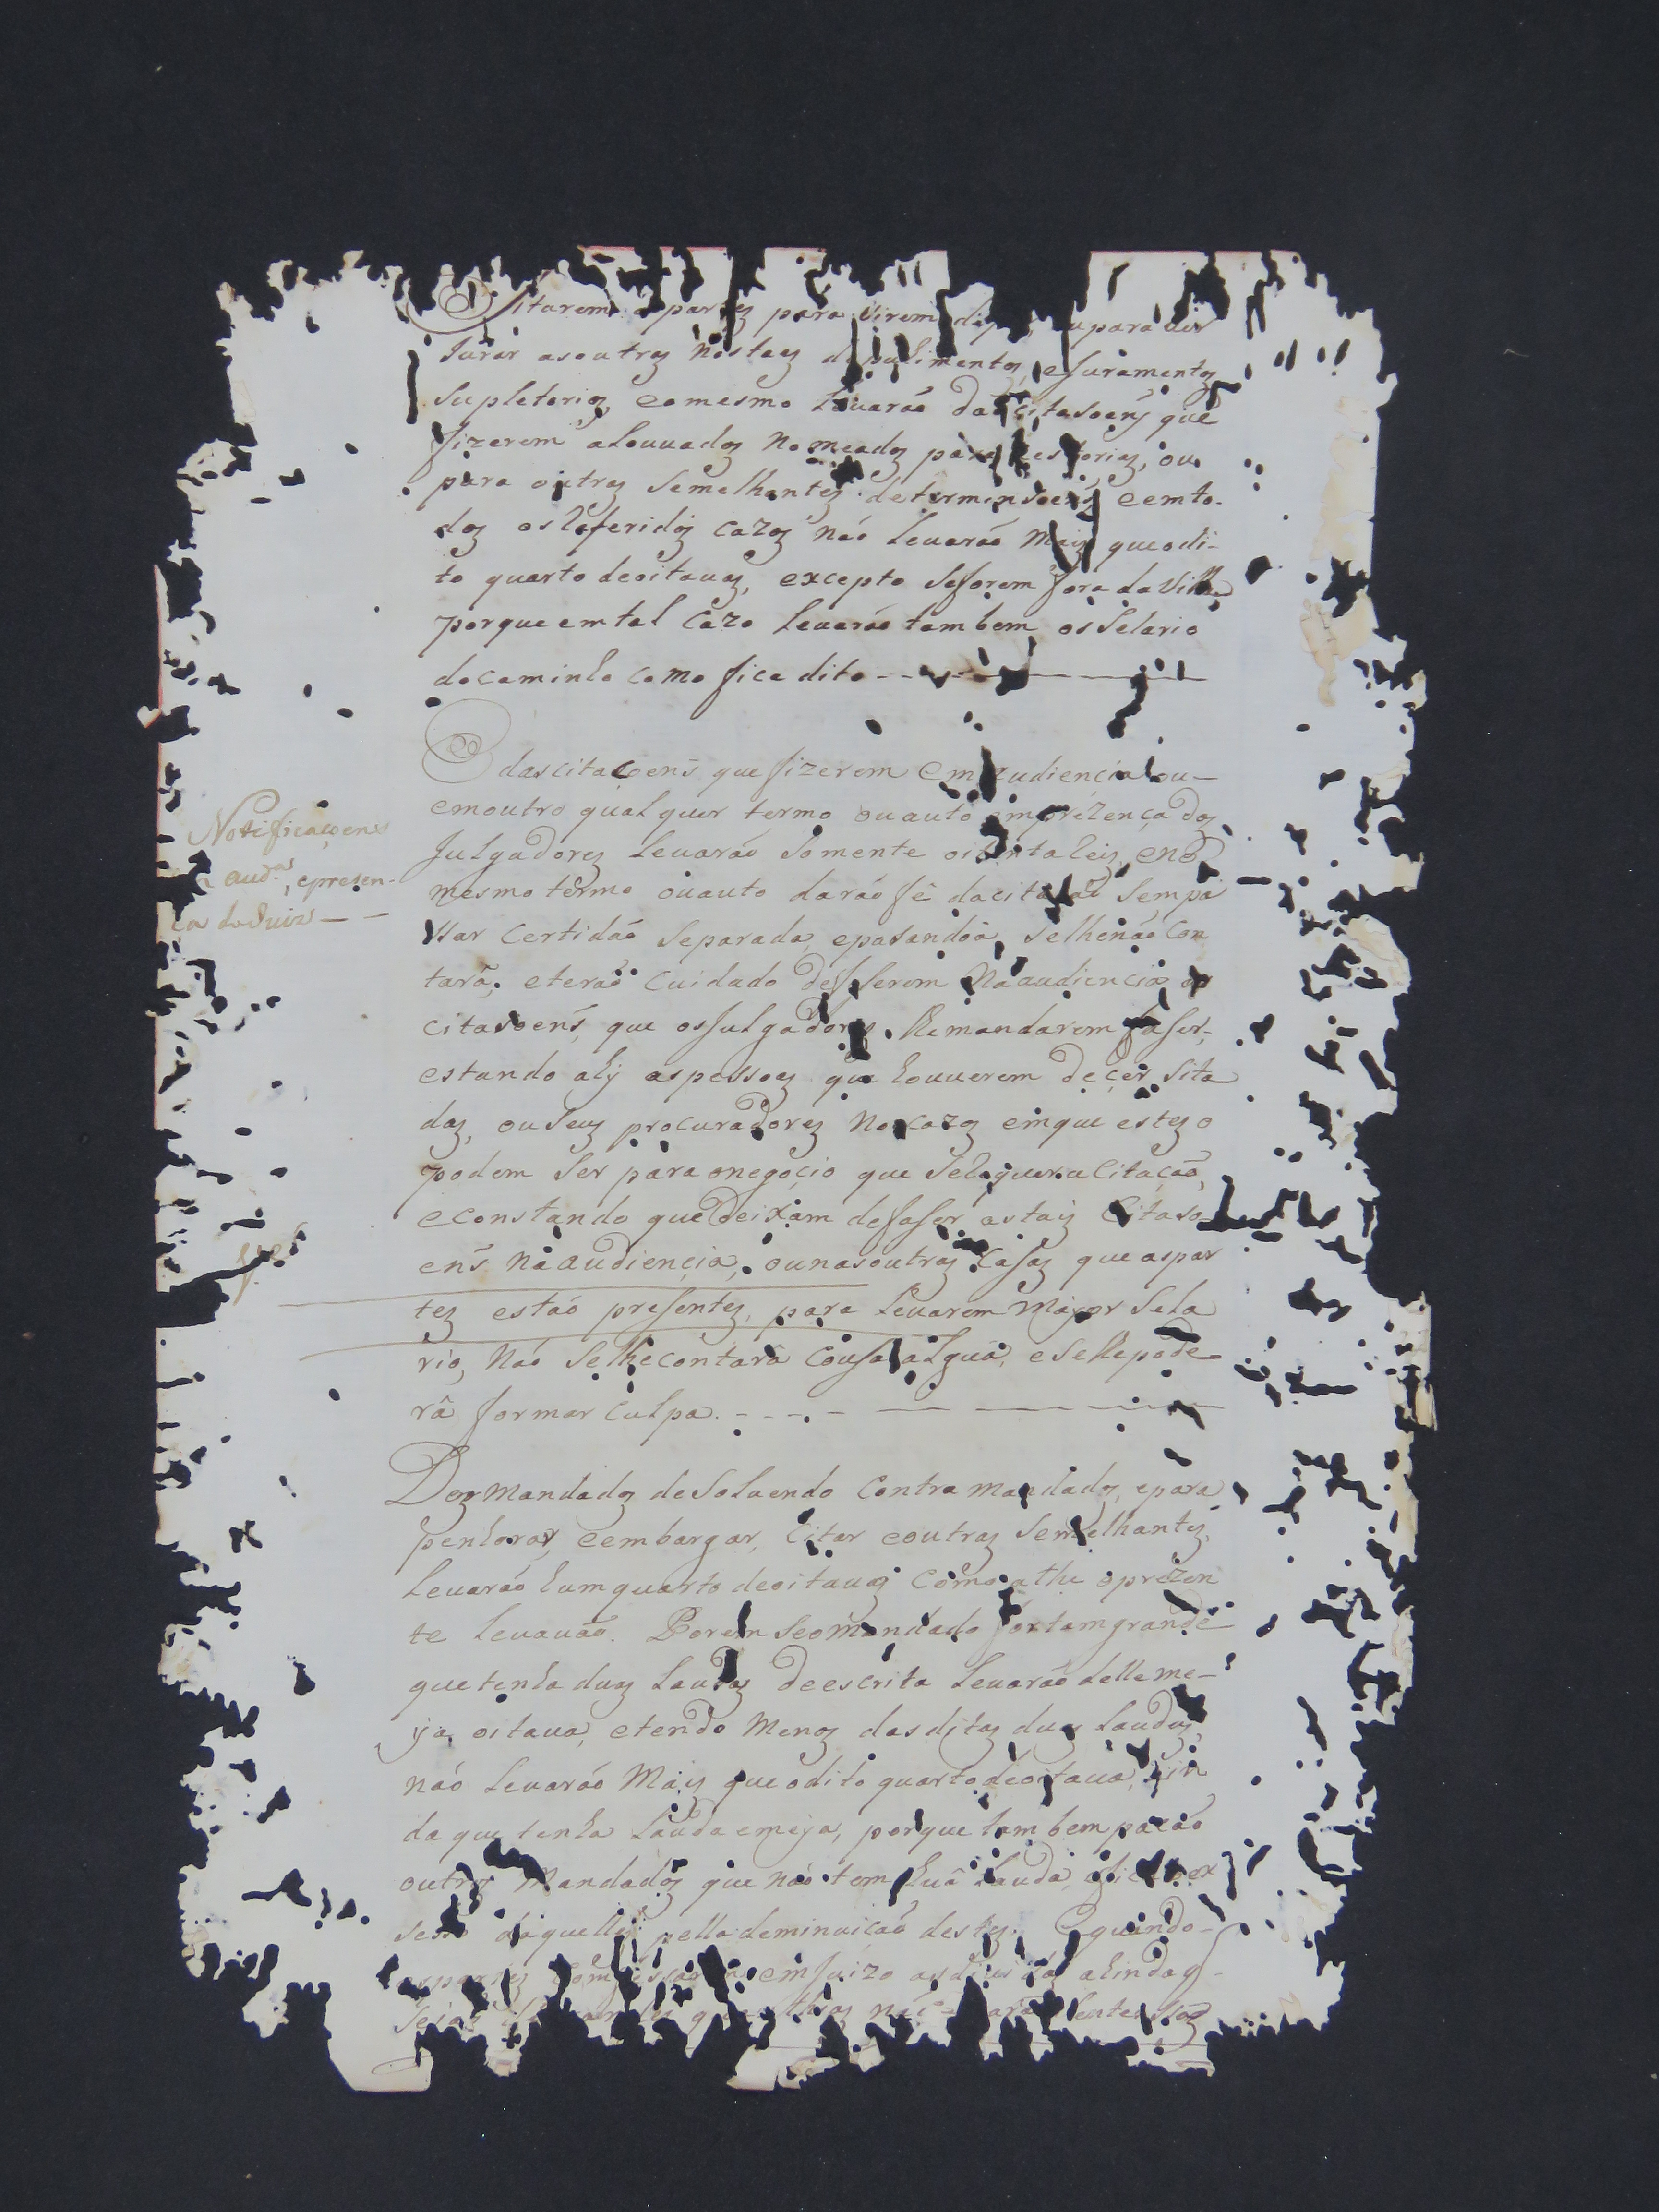 Sitarem as partes para virem ou para ver
Jurar as outras nestes depuhimentos, e Juramentos
Supletorios, e o mesmo Levarão das citasoens que
fizerem a Louvados nomeados para Vestorias, ou
para outras Semelhantes determinsoens e em to-
dos os Referidos cazos não Levarão mais que o di-
to quarto de oitavas, excepto Se forem fora da Villa
porque em tal Cazo Levarão tambem os Selario
do caminho como fica dito
E das citaçoens que fizerem em audiencia ou-
em outro qualquer termo ou auto em prezença dos
Julgadores Levarão Somente oitenta Reis, e no
mesmo termo ou auto darão fê da citasão Sem pa
ssar Certidão Separada, e pasandoa, Se lhe não Con
tarâ, e terão Cuidado de fserem na audiencia as
citasoens, que os Julgadores lhe mandarem faser,
estando alÿ as pessoas que houverem de cer Sita
das, ou Seus procuradores nos cazos em que estes o
podem Ser para o negocio que Se Requer a Citação,
e constando que deixam de faser as tais Citaso
ens na audiencia, ou nas outras Casas que as par
tes estão presentes, para Levarem mayor Sela
rio, não Se lhe contarâ Cousa alguâ, e Se lhe pode
râ formar Culpa.
Notificaçoens
audas, e presen-
ça do Juiz
Dos Mandados de Solvendo Contra mandados, e para
penhorar, e embargar, Citar e outras Semelhantes,
Levarão hum quarto de oitavas como athe o prezen
te Levavão. Porem Se o mandado for tam grande
que tenha duas Laudas de escrita Levarão delle me-
ÿa oitava, e tendo menos das ditas duas Laudas,
não Levarão Mais que o dito quarto de oitava, ain
da que tenha Lauda e meÿa, porque tambem pasão
outros Mandados que não tem huâ Lauda, e fica o ex
sesso daquelles pella deminuição destes. E quando-
as partes em Juizo as dividas ahinda q-